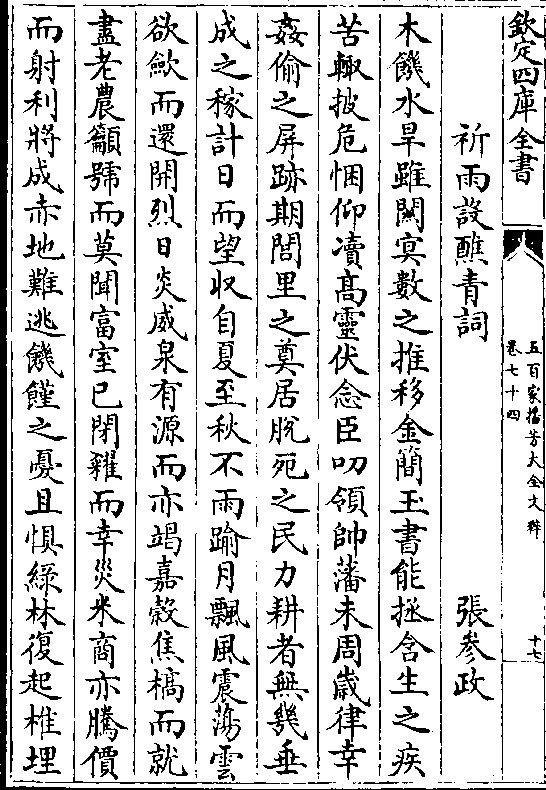 欽定四庫全書
五百家播芳大全文粹
卷七十四
十七
祈雨設醮青詞 張參政
木饑水旱雖闗㝠數之推移金簡玉書能拯含生之疾
苦輙披危悃仰凟髙靈伏念臣叨領帥藩未周嵗律幸
姦偷之屏跡期閭里之奠居脱死之民力耕者無幾垂
成之稼計日而望収自夏至秋不雨踰月飄風震蕩雲
欲歛而還開烈日炎威泉有源而亦竭嘉穀焦槁而就
盡老農籲號而莫聞富室已閉糴而幸災米商亦騰價
而射利將成赤地難逃饑饉之憂且惧緑林復起椎埋